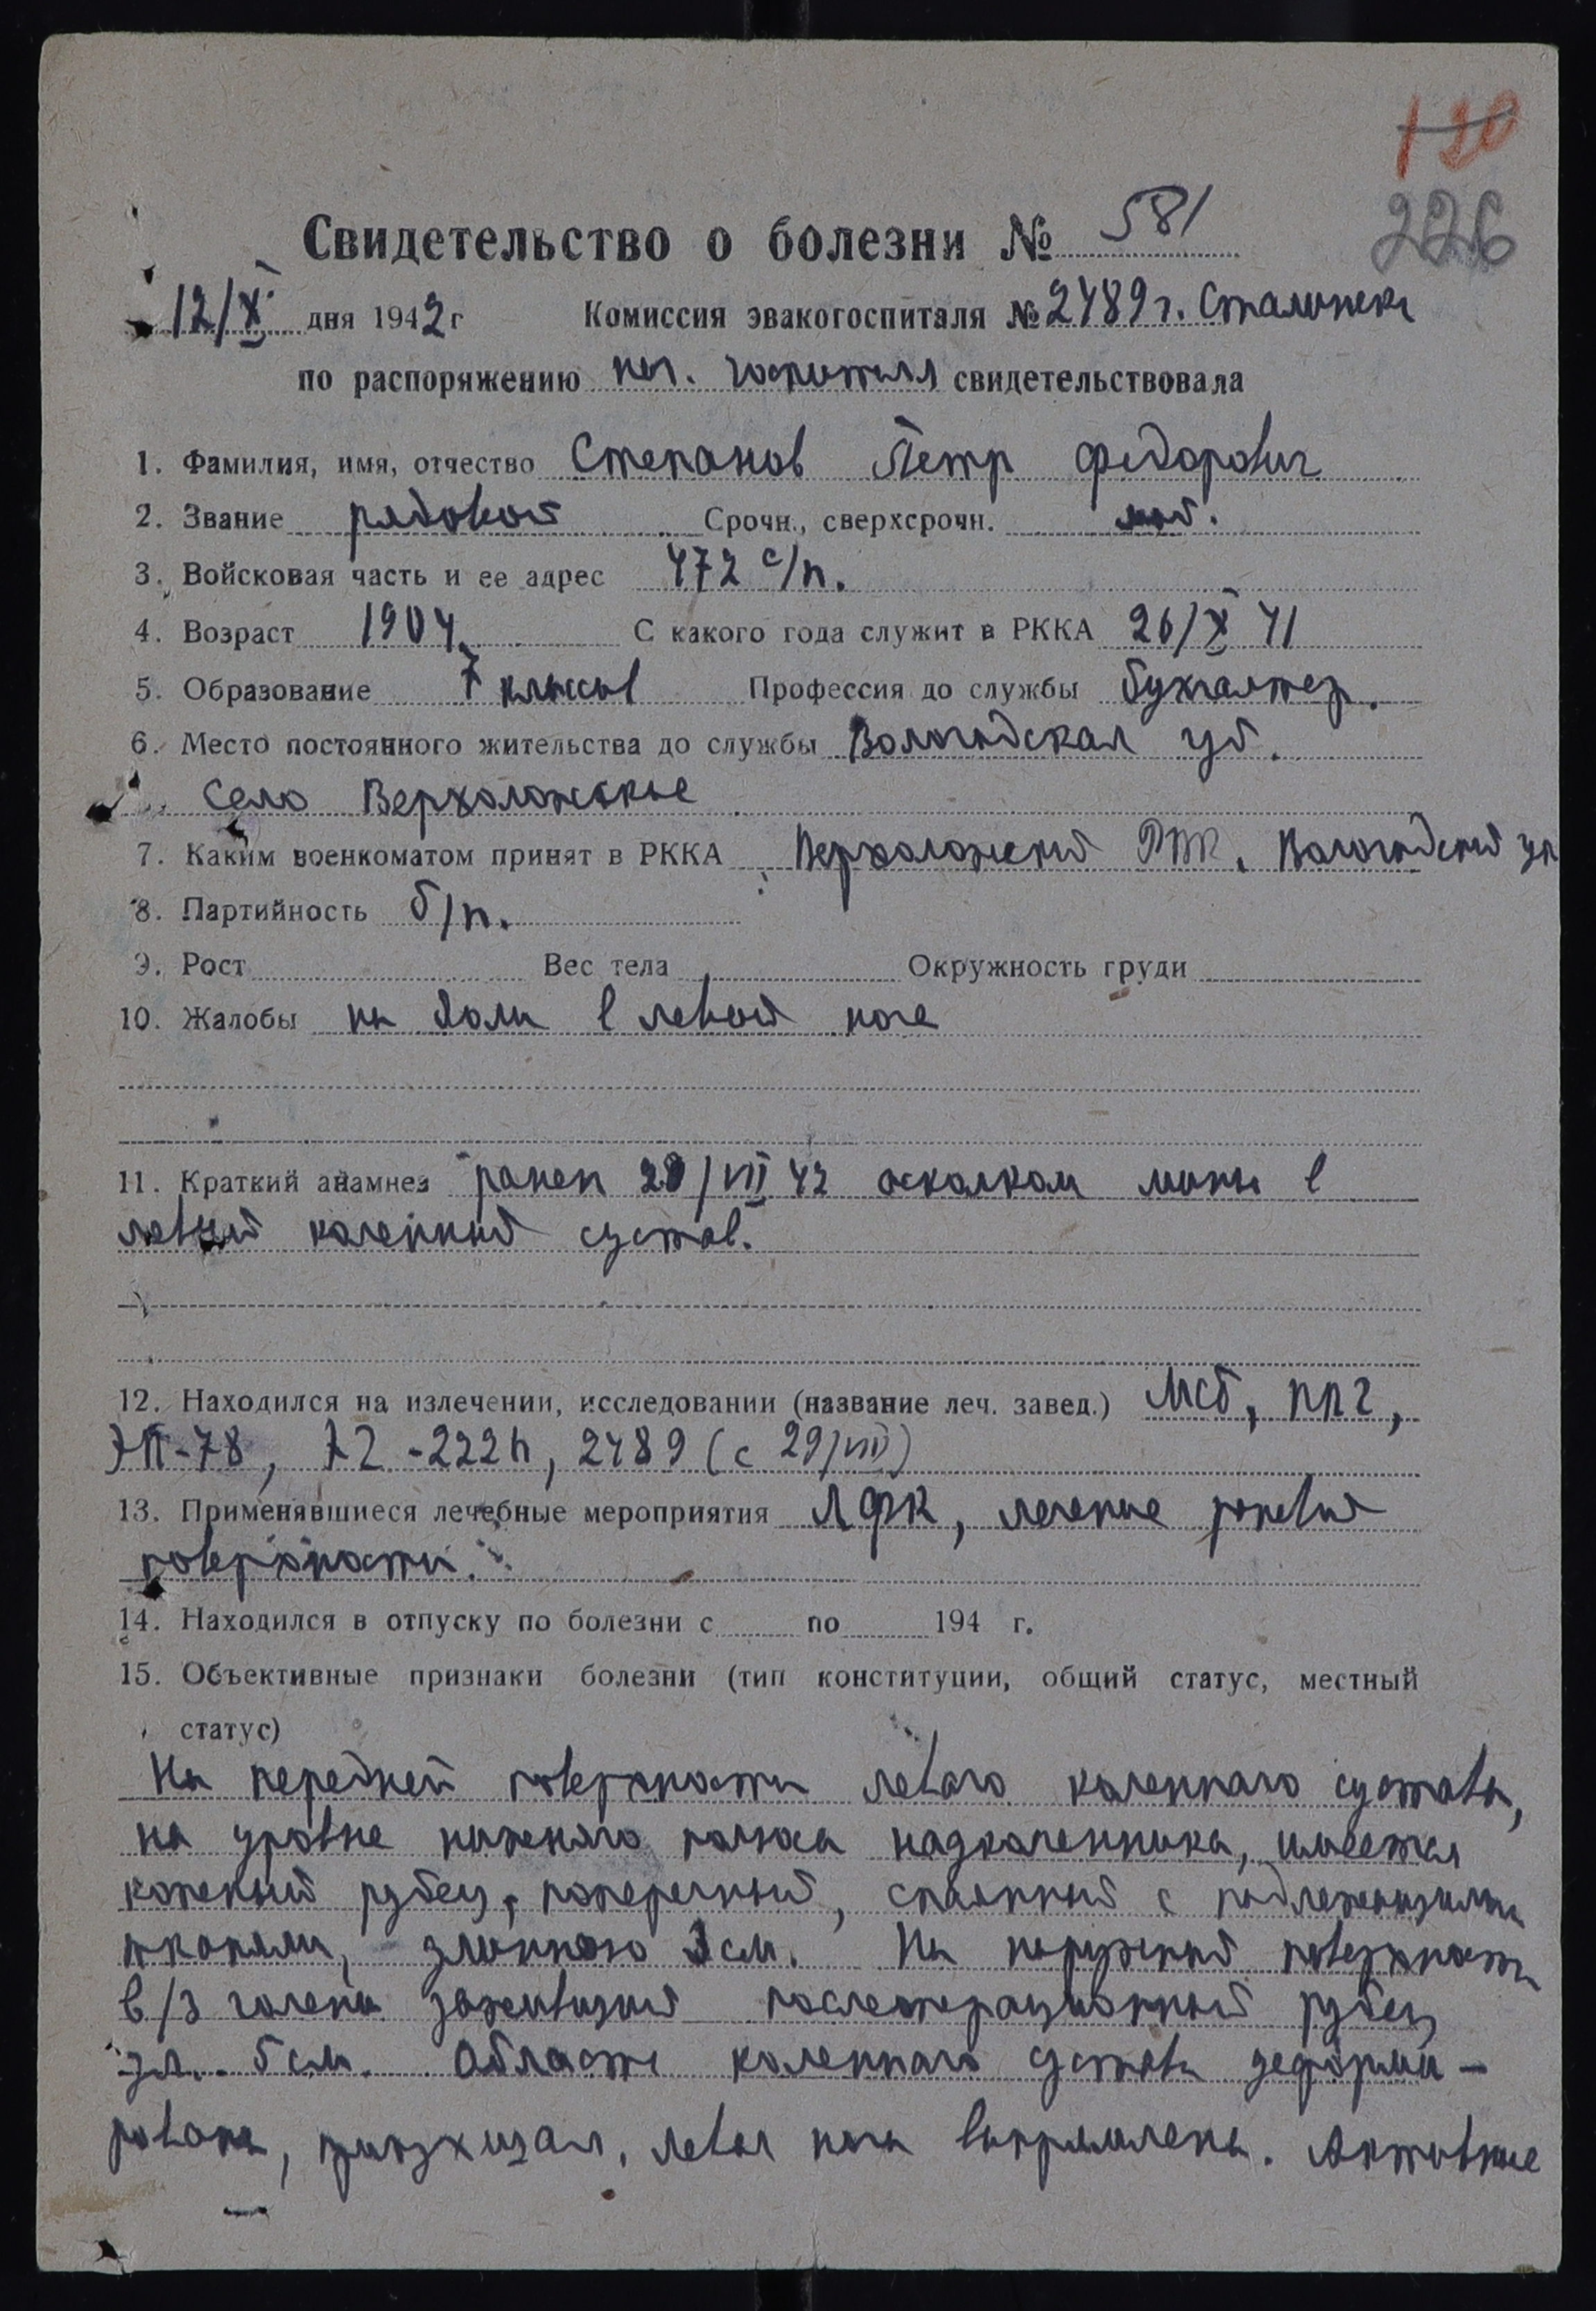 120
226
Свидетельство о болезни № 581
12/X дня 1942 г Комиссия эвакогоспиталя № 2489 г. Сталинск
по распоряжению нач. госпиталя свидетельствовала
1. Фамилия, имя, отчество Степанов Петр Федорович
2. Звание рядовой Срочн., сверхсрочн. моб.
3. Войсковая часть и ее адрес 472 с/п.
4. Возраст 1904 С какого года служит в РККА 26/X 41
5. Образование 7 классов Профессия до службы бухгалтер.
6. Место постоянного жительства до службы Вологодская
Село Верховажское
7. Каким военкоматом принят в РККА Вологодский
8. Партийность б/п.
9. Рост Вес тела Окружность груди
10. Жалобы на боли в левой ноге
11. Краткий анамнез ранен 28/VII 42 осколком мины в
левый коленный сустав.
12. Находился на излечении, исследовании (название леч. завед.) МСБ, ППГ,
2489 (с 29/VIII)
13. Применявшиеся лечебные мероприятия ЛФК, лечение раневой
поверхности.
14. Находился в отпуску по болезни с по 194 г.
15. Объективные признаки болезни (тип конституции, общий статус, местный
статус)
На передней поверхности левого коленного сустава,
на уровне нижнего полюса надколенника, имеется
кожный рубец, поперечный, спаянный с подлежащими
тканями, длинною 3 см. На наружной поверхности
в/3 голени заживший послеоперационный рубец
дл. 5 см. Область коленного сустава деформи-
рована, левая нога выпрямлена. Активные